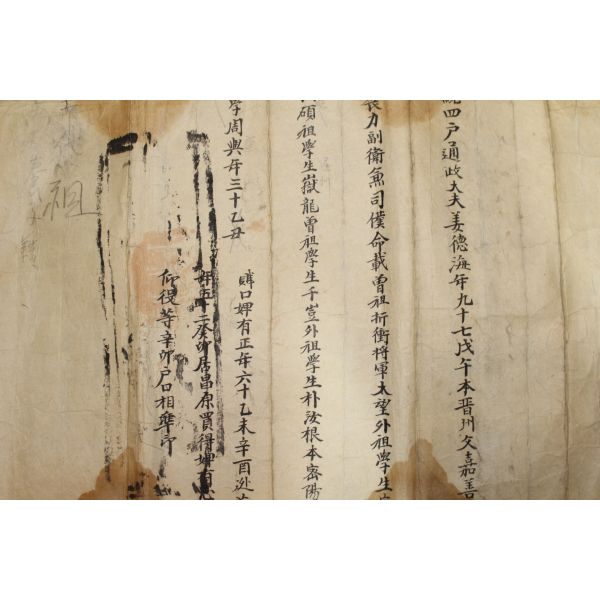 統四戶通政大夫姜德海年九十七戊午本晋州父嘉善
長力副衛兼司僕命載曾祖折衝將軍太望外祖學生
碩祖學生嶽龍曾祖學生千豈外祖學生朴汝根本密陽
學周興年三十乙丑
購口婢有正年六十乙未辛酉逃
婢五年二癸卯居昌原買得婢有
仰役等辛卯戶口相準印
祖